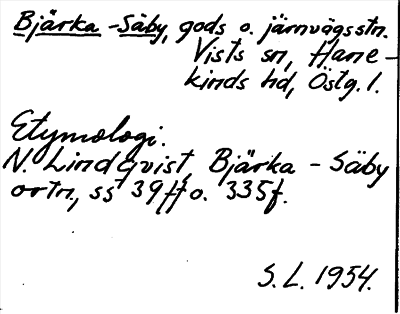 Bjärka-Säby, gods o. järnvägsstn.
Vists sn, Hane-
kinds hd, Östg. l.
Etymologi.
N. Lindqvist, Bjärka-Säby
ortn., ss 39ff o. 335f.
S.L. 1954.